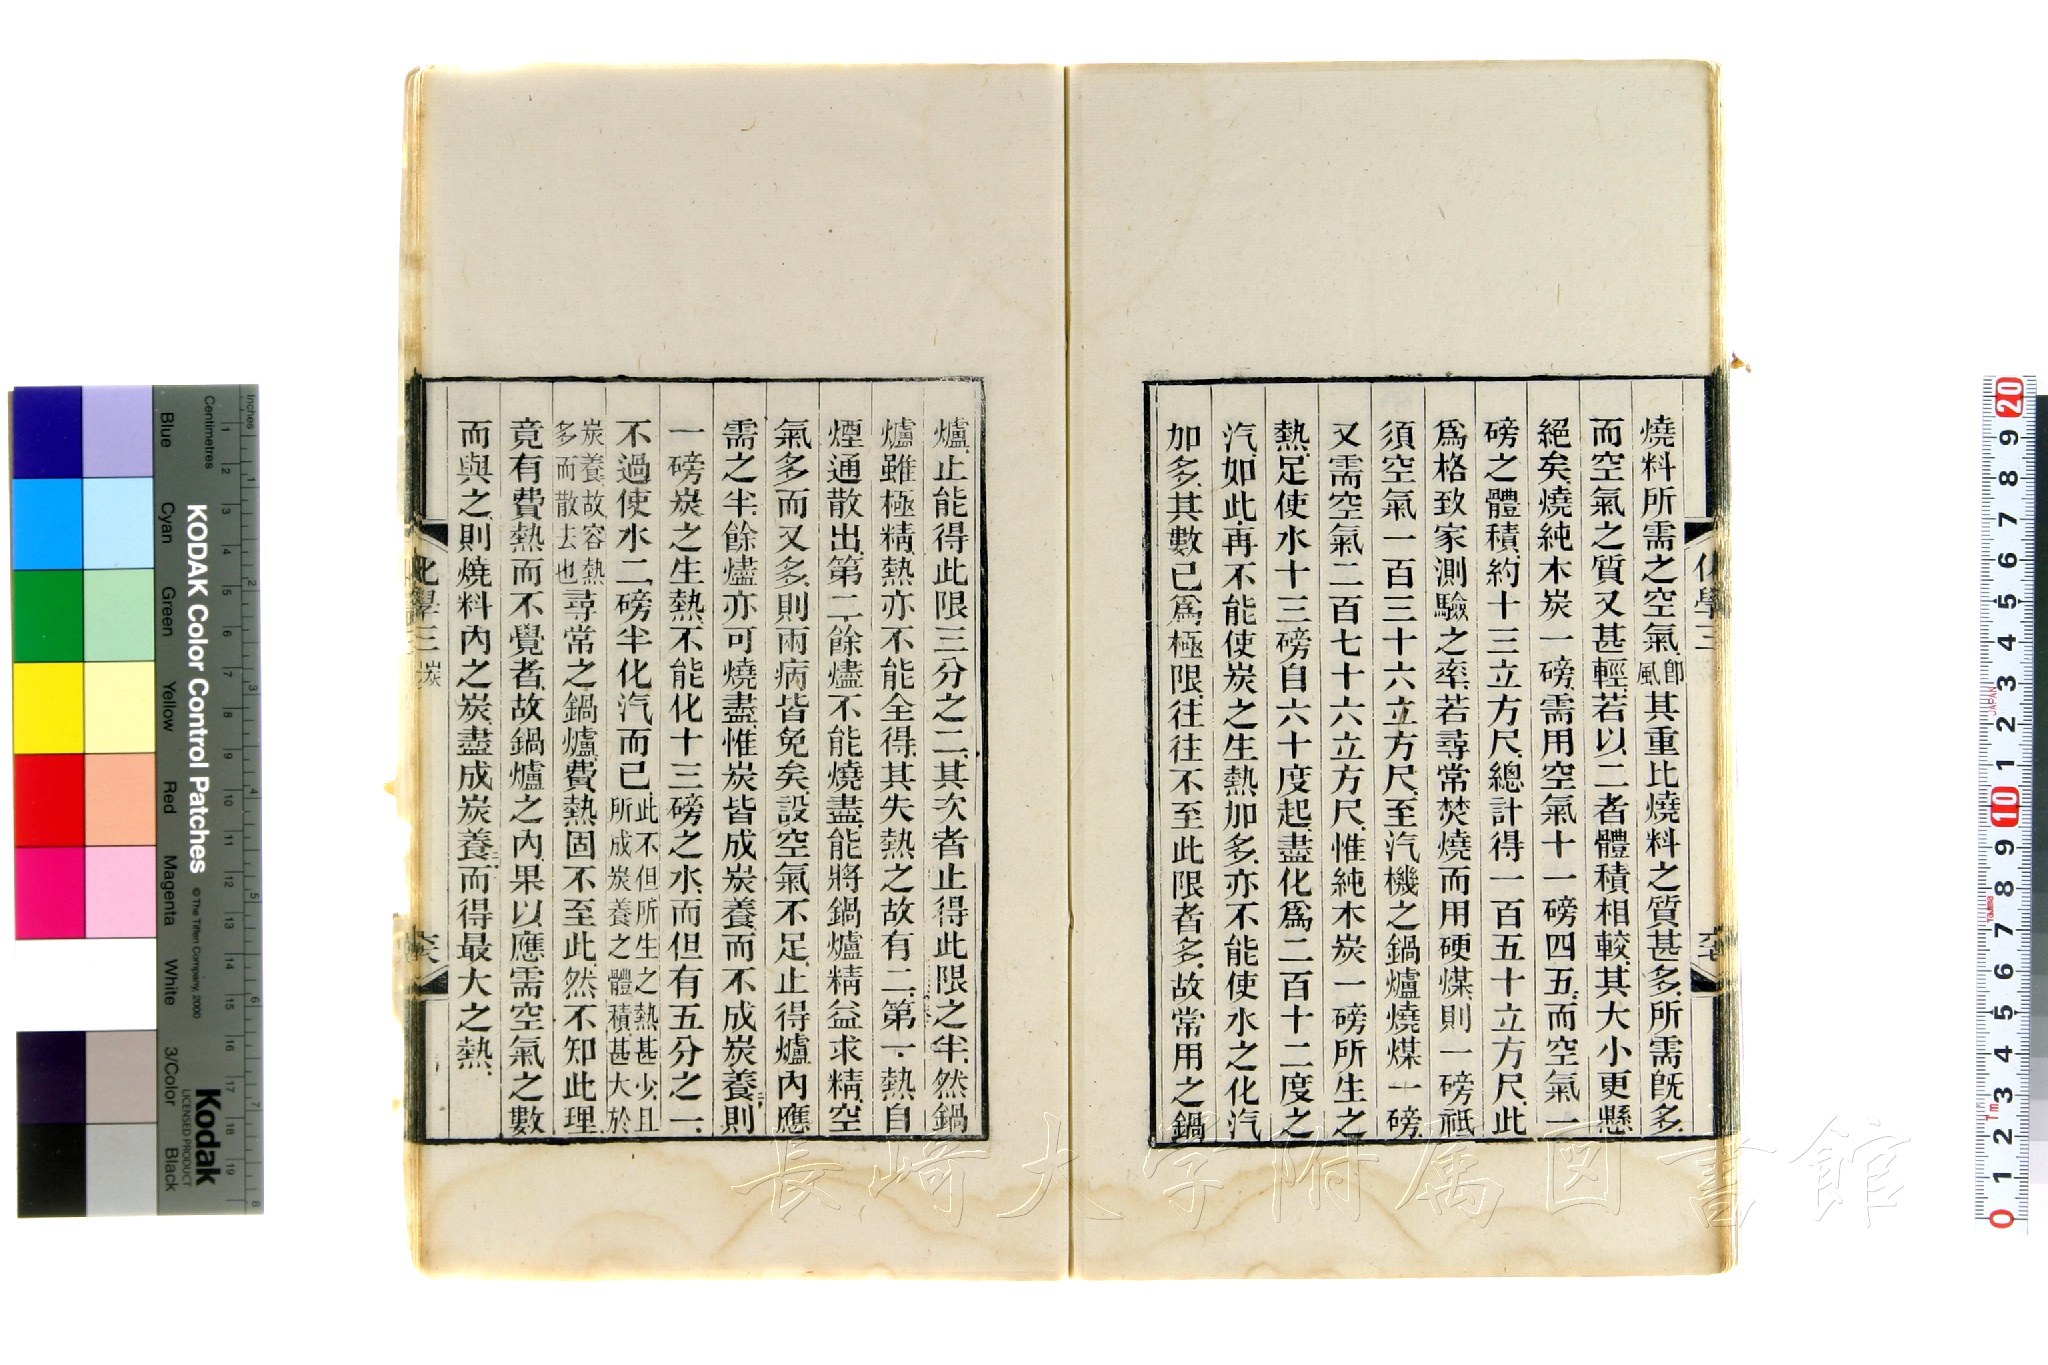 燒料所需之空氣卽風其重比燒料之質甚多所需旣多
而空氣之質又甚輕若以二者體積相較其大小更懸
絕矣燒純木炭一磅需用空氣十一磅四五而空氣一
磅之體積約十三立方尺總計得一百五十立方尺此
爲格致家測驗之率若尋常焚燒而用硬煤則一磅祗
須空氣一百三十六立方尺至汽機之鍋爐燒煤一磅
又需空氣二百七十六立方尺惟純木炭一磅所生之
熱足使水十三磅自六十度起盡化爲二百十二度之
汽如此再不能使炭之生熱加多亦不能使水之化汽
加多其數已爲極限往往不至此限者多故常用之鍋
爐止能得此限三分之二其次者止得此限之半然鍋
爐雖極精熱亦不能全得其失熱之故有二第一熱自
煙通散出第二餘燼不能燒盡能將鍋爐精益求精空
氣多而又多則兩病皆免矣設空氣不足止得爐內應
需之半餘燼亦可燒盡惟炭皆成炭養而不成炭養二則
一磅炭之生熱不能化十三磅之水而但有五分之一
不過使水二磅半化汽而已此不但所生之熱甚少且所成炭養之體積甚大於
炭養二故容熱多而散去也尋常之鍋爐費熱固不至此然不知此理
竟有費熱而不覺者故鍋爐之內果以應需空氣之數
而與之則燒料內之炭盡成炭養二而得最大之熱
化學三
化學三 炭
長崎大学附属図書館
KODAK Color Control Patches
© The Tiffen Company, 2000
Kodak
LICENSED PRODUCT
Inches
Centimetres
Blue
Cyan
Green
Yellow
Red
Magenta
White
3/Color
Black
1 2 3 4 5 6 7 8 9 10 11 12 13 14 15 16 17 18 19
1 2 3 4 5 6 7 8
20 9 8 7 6 5 4 3 2 1 10 9 8 7 6 5 4 3 2 1 0
JAPAN